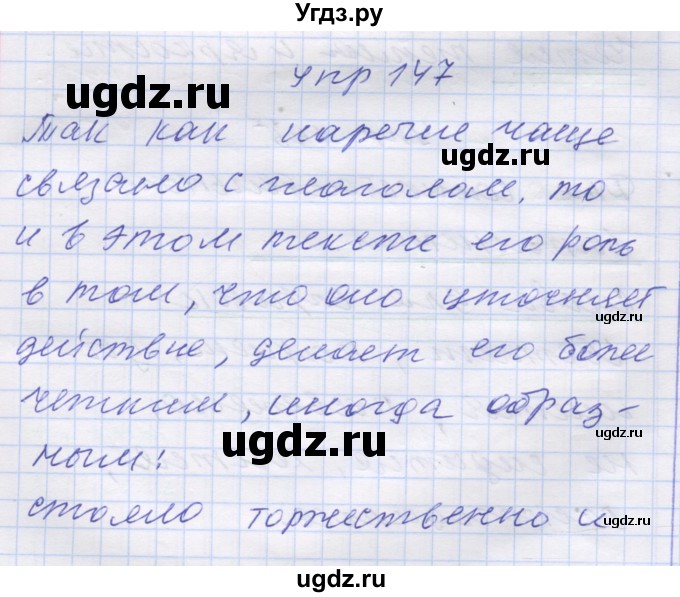 Угдз.ру
ugdz.ru
упр 147
Так как наречие чаще
ugdz.ru
связано с глаголом, то
и в этом тексте его роль
ugdz.ru
в том, что оно уточняет
ugdz.ru
действие, делает его более
четким, иногда образ-
ugdz.ru
ugdz.ru
ным:
стояло торжественно и
ugdz.ru
ugdz.ru
ugdz.ru